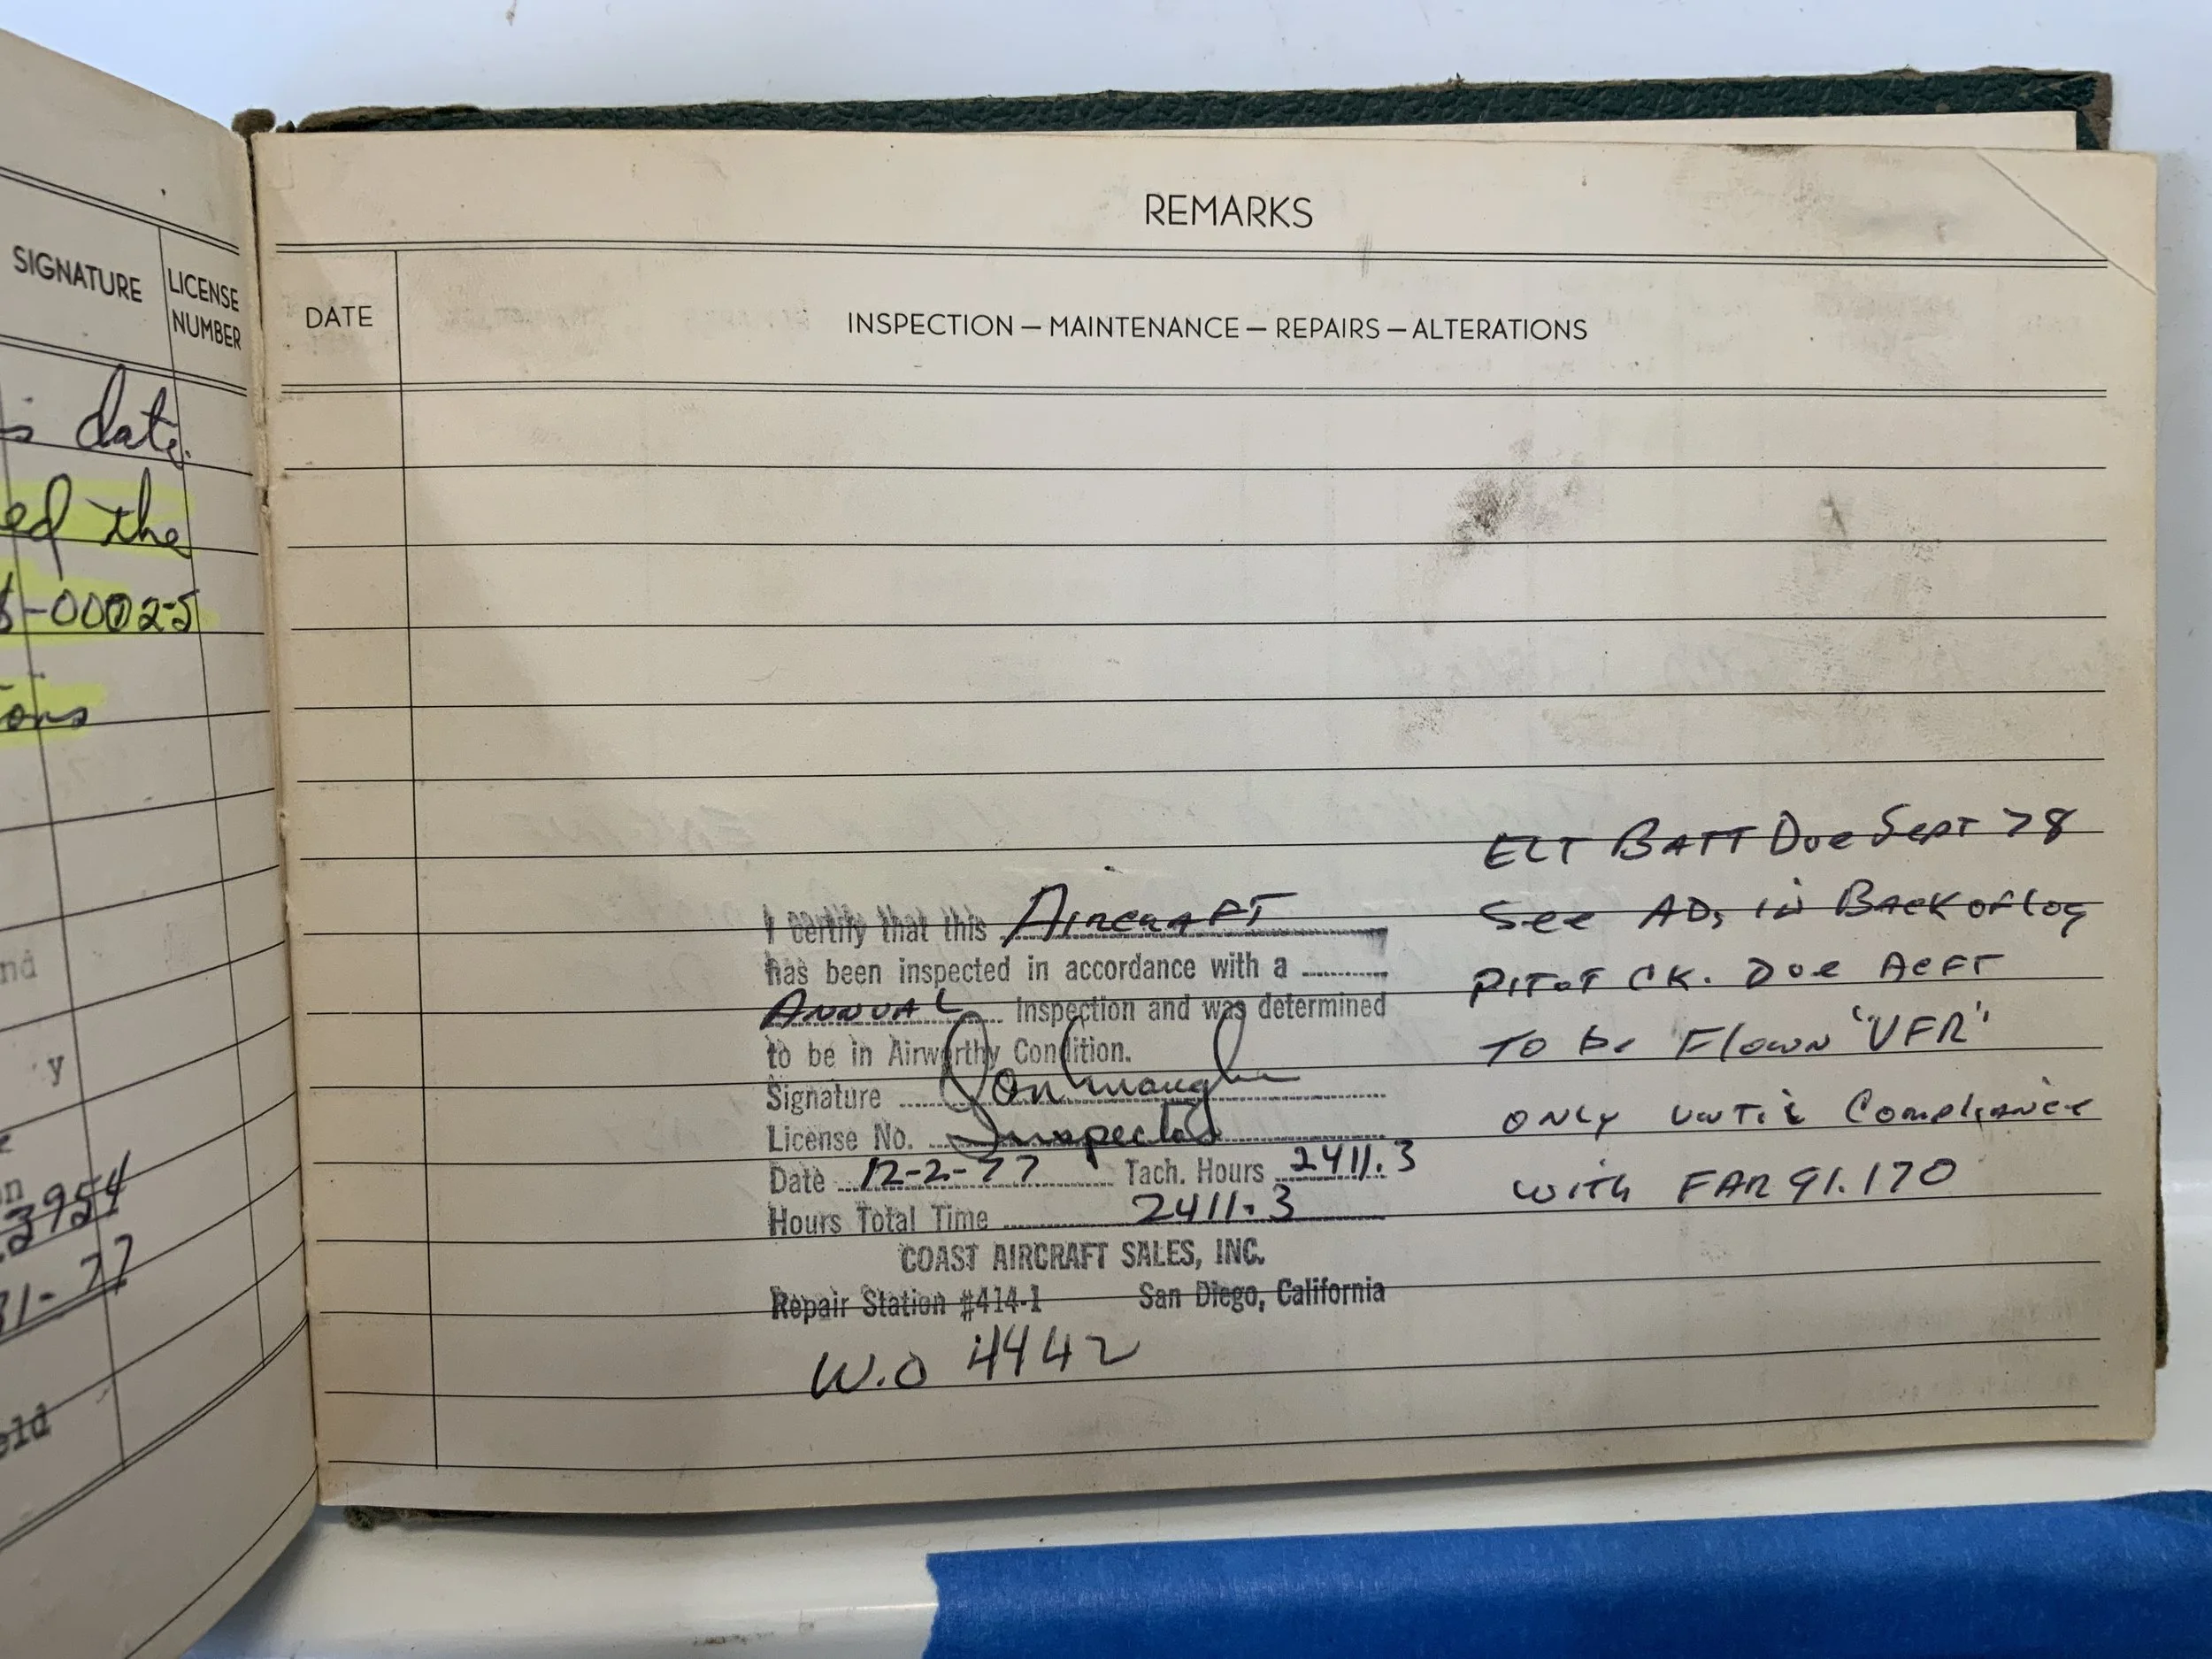 SIGNATURE
LICENSE
NUMBER
s date.
ed the
-00025
ons
nd
y
n
3954
31-77
eld
REMARKS
DATE
INSPECTION — MAINTENANCE — REPAIRS — ALTERATIONS
I certify that this Aircraft
has been inspected in accordance with a
Annual Inspection and was determined
to be in Airworthy Condition.
Signature
License No. Inspector
Date 12-2-77 Tach. Hours 2411.3
Hours Total Time 2411.3
COAST AIRCRAFT SALES, INC.
Repair Station #414-1 San Diego, California
W.O 4442
ELT BATT Due Sept 78
See AD, in Back of log
PITOT CK. Due Acft
To be Flown 'VFR'
only until Compliance
with FAR 91.170